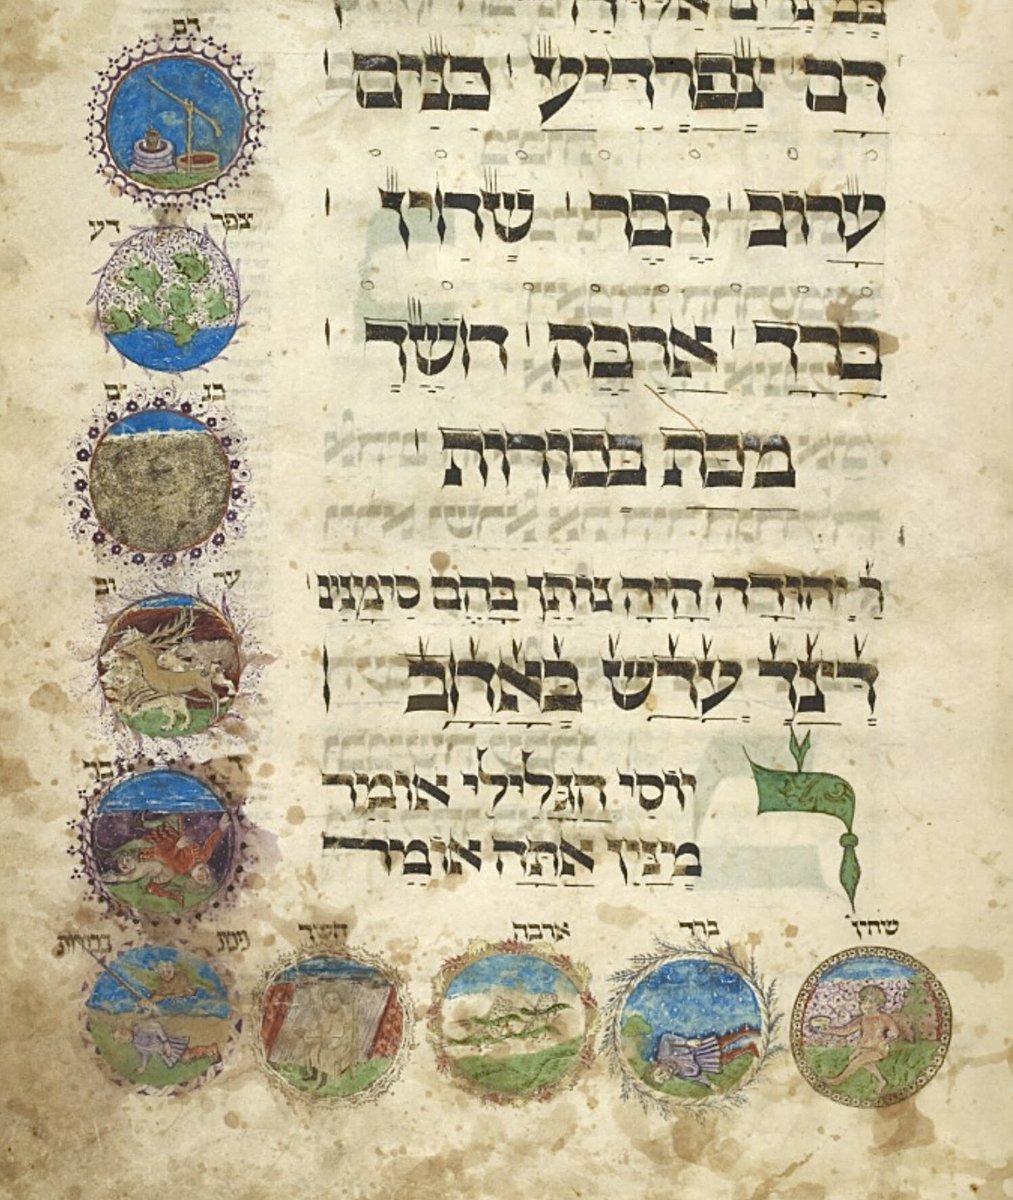 במצרים אלו הן
דם צפרדיע כנים
ערוב דבר שחין
ברד ארבה חשך
מכת בכורות
ר יהודה היה נותן בהם סימנים
דצך עדש באחב
ר יוסי הגלילי אומר
מנין אתה אומר
דם
צפר דע
כנ ים
ער וב
ד בר
שחין
ברד
ארבה
חשך
מכת בכורות